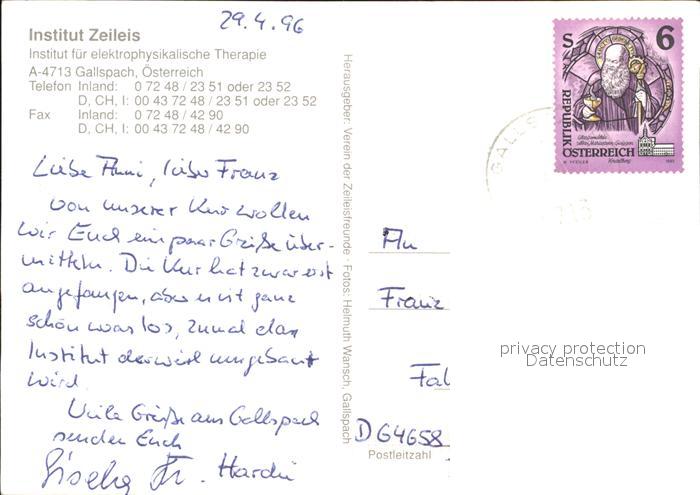 29.4.96
Institut Zeileis
Institut für elektrophysikalische Therapie
A-4713 Gallspach, Österreich
Telefon Inland: 0 72 48 / 23 51 oder 23 52
D, CH, I: 00 43 72 48 / 23 51 oder 23 52
Fax Inland: 0 72 48 / 42 90
D, CH, I: 00 43 72 48 / 42 90
Liebe Anni, lieber Franz
von unserer Kur wollen
wir Euch ein paar Grüße über-
mitteln. Die Kur hat zwar erst
angefangen, aber es ist ganz
schön was los, zumal das
Institut derweil umgebaut
wird.
Viele Grüße aus Gallspach
senden Euch
Gisela Hardi
Herausgeber: Verein der Zeileisfreunde · Fotos: Helmuth Wansch, Gallspach
S 6
REPUBLIK
ÖSTERREICH
GALLS
An
Franz
privacy protection
Datenschutz
D 64658
Postleitzahl